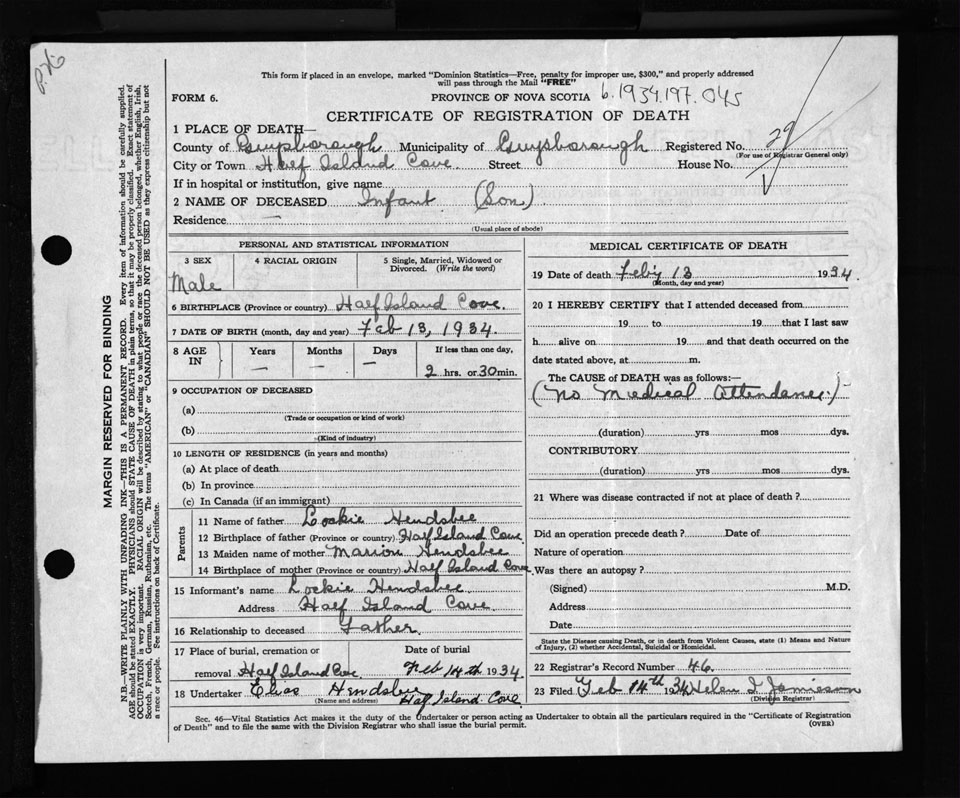 This form if placed in an envelope, marked "Dominion Statistics—Free, penalty for improper use, $300," and properly addressed
will pass through the Mail "FREE"
FORM 6. PROVINCE OF NOVA SCOTIA b.1934.197.045
CERTIFICATE OF REGISTRATION OF DEATH
1 PLACE OF DEATH—
County of Guysborough Municipality of Guysborough Registered No. 29
(For use of Registrar General only)
City or Town Half Island Cove Street House No.
If in hospital or institution, give name
2 NAME OF DECEASED Infant (Son)
Residence —
(Usual place of abode)
PERSONAL AND STATISTICAL INFORMATION
3 SEX 4 RACIAL ORIGIN 5 Single, Married, Widowed or
Divorced. (Write the word)
Male
6 BIRTHPLACE (Province or country) Half Island Cove.
7 DATE OF BIRTH (month, day and year) Feb 13, 1934.
8 AGE IN Years Months Days If less than one day,
— — — 2 hrs. or 30 min.
9 OCCUPATION OF DECEASED
(a)
(Trade or occupation or kind of work)
(b)
(Kind of industry)
10 LENGTH OF RESIDENCE (in years and months)
(a) At place of death
(b) In province
(c) In Canada (if an immigrant)
Parents
11 Name of father Lockie Hendsbee
12 Birthplace of father (Province or country) Half Island Cove
13 Maiden name of mother Marion Hendsbee
14 Birthplace of mother (Province or country) Half Island Cove
15 Informant's name Lockie Hendsbee
Address Half Island Cove.
16 Relationship to deceased Father.
17 Place of burial, cremation or Date of burial
removal Half Island Cove Feb 14th 1934
18 Undertaker Elias Hendsbee
(Name and address) Half Island Cove
MEDICAL CERTIFICATE OF DEATH
19 Date of death Feby 13 1934.
(Month, day and year)
20 I HEREBY CERTIFY that I attended deceased from
19 to 19 that I last saw
h alive on 19 and that death occurred on the
date stated above, at m.
The CAUSE of DEATH was as follows:—
(No Medical Attendance.)
(duration) yrs mos dys.
CONTRIBUTORY
(duration) yrs mos dys.
21 Where was disease contracted if not at place of death?
Did an operation precede death? Date of
Nature of operation
Was there an autopsy?
(Signed) M.D.
Address
Date
State the Disease causing Death, or in death from Violent Causes, state (1) Means and Nature
of Injury, (2) whether Accidental, Suicidal or Homicidal.
22 Registrar's Record Number 46
23 Filed Feb 14th 1934 Helen I Jamieson
(Division Registrar)
Sec. 46—Vital Statistics Act makes it the duty of the Undertaker or person acting as Undertaker to obtain all the particulars required in the "Certificate of Registration
of Death" and to file the same with the Division Registrar who shall issue the burial permit. (OVER)
MARGIN RESERVED FOR BINDING
N.B.—WRITE PLAINLY WITH UNFADING INK—THIS IS A PERMANENT RECORD. Every item of information should be carefully supplied.
AGE should be stated EXACTLY. PHYSICIANS should STATE CAUSE OF DEATH in plain terms, so that it may be properly classified. Exact statement of
OCCUPATION is very important. RACIAL ORIGIN will be described by stating to what people or race the deceased person belonged, whether English, Irish,
Scotch, French, German, Russian, Ruthenian, etc. The terms "AMERICAN" or "CANADIAN" SHOULD NOT BE USED as they express citizenship but not
a race or people. See instructions on back of Certificate.